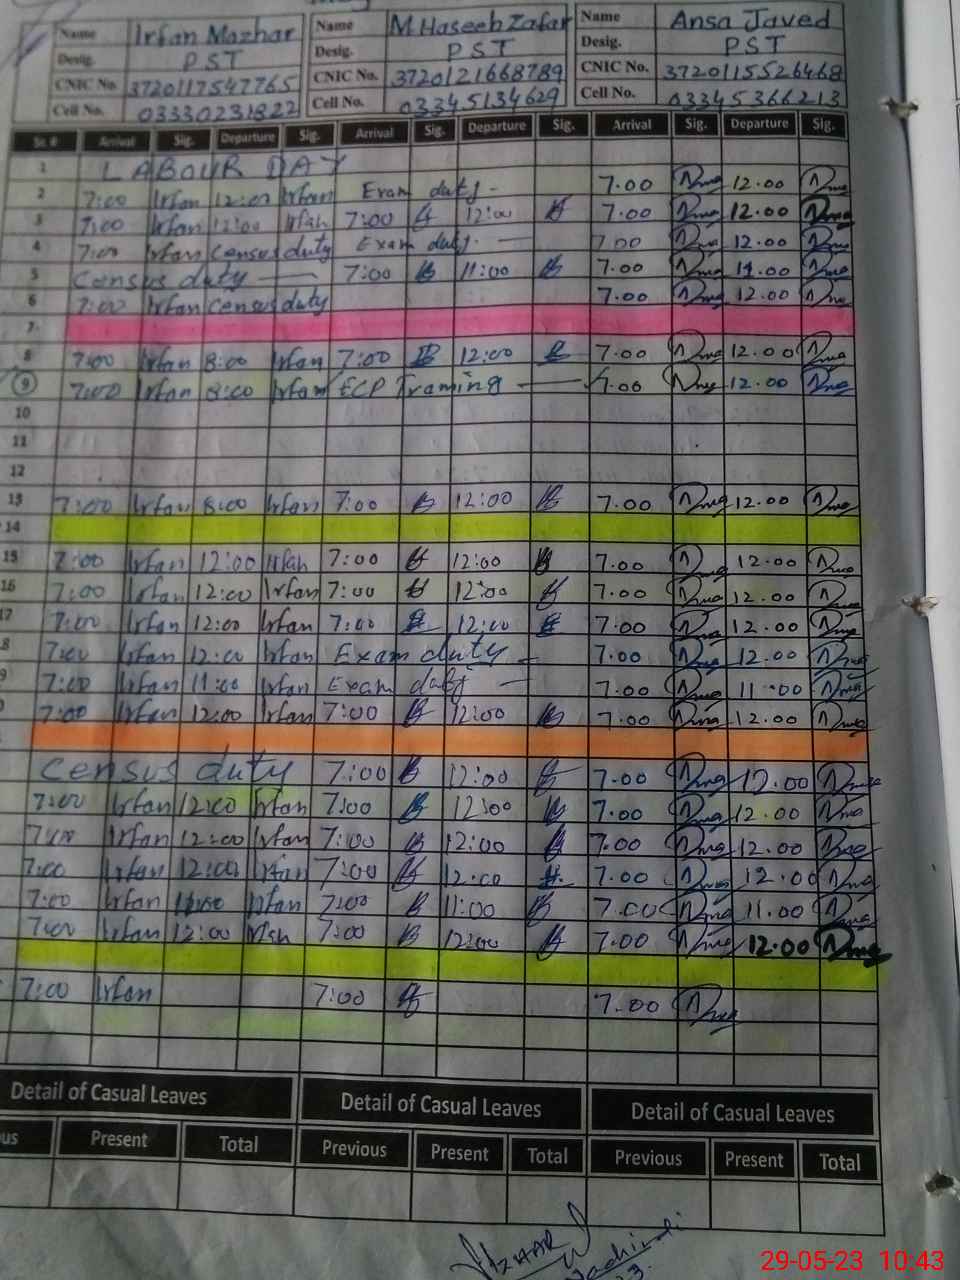 Name Irfan Mazhar Name M.Haseeb Zafar Name Ansa Javed
Desig. PST Desig. PST Desig. PST
CNIC No. 3720117547765 CNIC No. 3720121668789 CNIC No. 3720115526468
Cell No. 03330231822 Cell No. 03345134629 Cell No. 03345366213
Sr. # Arrival Sig. Departure Sig. Arrival Sig. Departure Sig. Arrival Sig. Departure Sig.
1 LABOUR DAY
2 7:00 Irfan 12:00 Irfan Exam duty - 7.00 12.00
3 7:00 Irfan 12:00 Irfan 7:00 12:00 7.00 12.00
4 7:00 Irfan Census duty Exam duty. 7.00 12.00
5 Census duty 7:00 11:00 7.00 11.00
6 7:00 Irfan Census duty 7.00 12.00
7
8 7:00 Irfan 8:00 Irfan 7:00 12:00 7.00 12.00
9 7:00 Irfan 8:00 Irfan ECP Traming 7.00 12.00
10
11
12
13 7:00 Irfan 8:00 Irfan 7:00 12:00 7.00 12.00
14
15 7:00 Irfan 12:00 Irfan 7:00 12:00 7.00 12.00
16 7:00 Irfan 12:00 Irfan 7:00 12:00 7.00 12.00
17 7:00 Irfan 12:00 Irfan 7:00 12:00 7.00 12.00
8 7:00 Irfan 12:00 Irfan Exam duty 7.00 12.00
9 7:00 Irfan 11:00 Irfan Exam duty 7.00 11.00
7:00 Irfan 12:00 Irfan 7:00 12:00 7.00 12.00
Census duty 7:00 12:00 7.00 12.00
7:00 Irfan 12:00 Irfan 7:00 12:00 7.00 12.00
7:00 Irfan 12:00 Irfan 7:00 12:00 7.00 12.00
7:00 Irfan 12:00 Irfan 7:00 12:00 7.00 12.00
7:00 Irfan Irfan 7:00 11:00 7.00 11.00
7:00 Irfan 12:00 7:00 12:00 7.00 12.00
7:00 Irfan 7:00 7.00
Detail of Casual Leaves Detail of Casual Leaves Detail of Casual Leaves
us Present Total Previous Present Total Previous Present Total
29-05-23 10:43